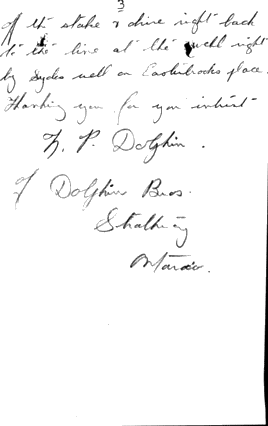 3
of th stake & drive right back
to the line at the well right
by Sydes well on place.
Thanking you for you intrest
P. Dolphin.
of Dolphin Bros.
Ontario.